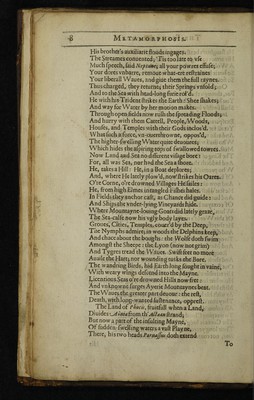 8 METAMORPHOSIS.
His brother's auxiliarie floods ingages.
The Streames convented; 'Tis too late to use
Much speech, said Neptune; all your powres effuse;
Your doores unbarre, remove what-ere restraines
Your liberall Waves, and give them the full raynes.
Thus charged, they returne; their Springs unfold;
And to the Sea with head-long furie rol'd.
He with his Trident strikes the Earth: Shee shakes;
And way for Water by her motion makes.
Through open fields now rush the spreading Floods;
And hurry with them Cattell, People, Woods,
Houses, and Temples with their Gods inclos'd.
What such a force, un-overthrowne, oppos'd,
The higher-swelling Water quite devoures;
Which hides the aspiring tops of swallowed towres.
Now Land and Sea no different visage bore:
For, all was Sea, nor had the Sea a shore.
He, takes a Hill: He, in a Boat deplores;
And, where He lately plow'd, now strikes his Oares.
O're Corne, o're drowned Villages He sailes:
He, from high Elmes intangled Fishes hales.
In Fields they anchor cast, as Chance did guide:
And Ships the under-lying Vineyards hide.
Where Mountayne-loving Goats did lately graze,
The Sea-calfe now his ugly body layes.
Groves, Cities, Temples, cover'd by the Deep,
The Nymphs admire; in woods the Delphins keep,
And chace about the boughs: the Wolfe doth swim
Amongst the Sheepe: the Lyon (now not grim)
And Tygers tread the Waves. Swift feet no more
Availe the Hart; nor wounding tuskes the Bore.
The wandring Birds, hid Earth long sought in vaine,
With weary wings descend into the Mayne.
Licentious Seas o're drowned Hills now fret:
And unknowne surges Ayerie Mountaynes beat.
The Waves the greater part devoure: the rest,
Death, with long-wanted sustenance, opprest.
The Land of Phocis, fruitfull when a Land,
Divides Aonia from th' Actæan strand;
But now a part of the insulting Mayne,
Of sudden-swelling waters a vast Playne.
There, his two heads Parnassus doth extend
To